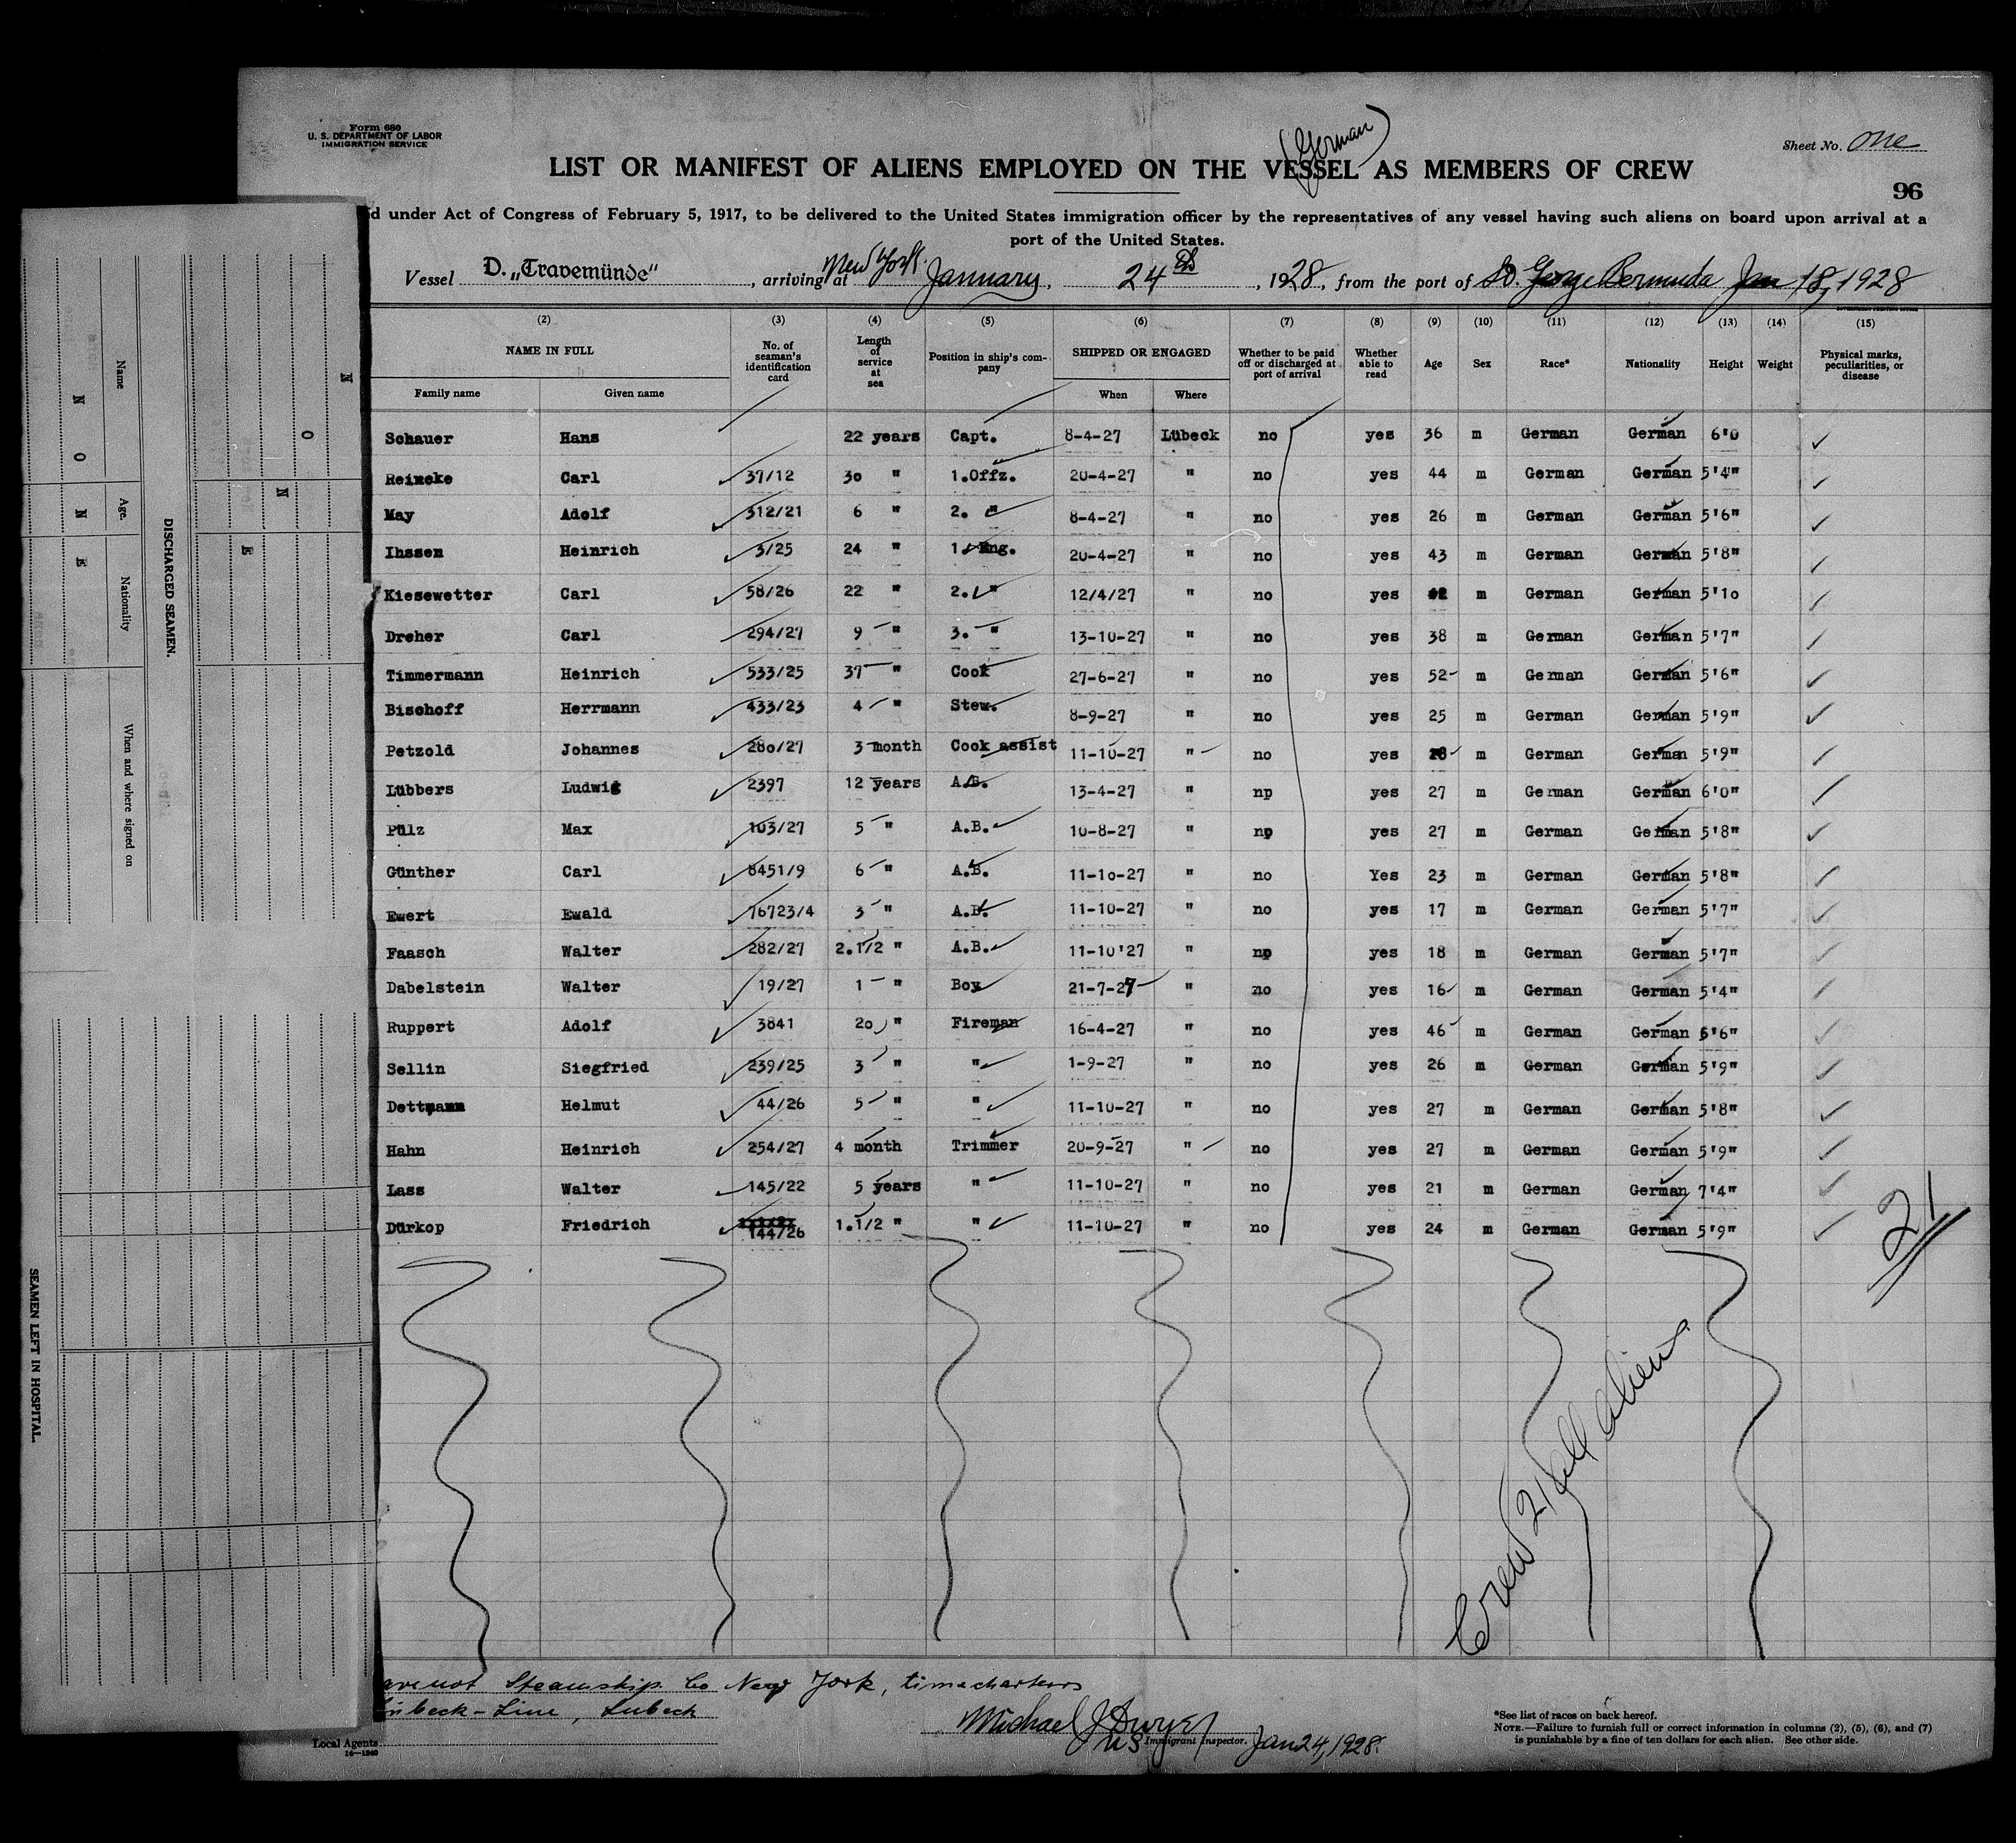 Form 680
U. S. DEPARTMENT OF LABOR
IMMIGRATION SERVICE
(German)
Sheet No. one
LIST OR MANIFEST OF ALIENS EMPLOYED ON THE VESSEL AS MEMBERS OF CREW
96
d under Act of Congress of February 5, 1917, to be delivered to the United States immigration officer by the representatives of any vessel having such aliens on board upon arrival at a
port of the United States.
Vessel D. „Travemünde“, arriving at New York. January, 24th, 1928, from the port of St. George Bermuda Jan 18, 1928
(2) (3) (4) (5) (6) (7) (8) (9) (10) (11) (12) (13) (14) (15)
NAME IN FULL No. of seaman's identification card Length of service at sea Position in ship's company SHIPPED OR ENGAGED Whether to be paid off or discharged at port of arrival Whether able to read Age Sex Race* Nationality Height Weight Physical marks, peculiarities, or disease
Family name Given name When Where
Schauer Hans 22 years Capt. 8-4-27 Lübeck no yes 36 m German German 6'0
Reincke Carl 37/12 30 " 1.Offz. 20-4-27 " no yes 44 m German German 5'4"
May Adolf 312/21 6 " 2. " 8-4-27 " no yes 26 m German German 5'6"
Ihssen Heinrich 3/25 24 " 1. Eng. 20-4-27 " no yes 43 m German German 5'8"
Kiesewetter Carl 58/26 22 " 2. " 12/4/27 " no yes m German German 5'10
Dreher Carl 294/27 9 " 3. " 13-10-27 " no yes 38 m German German 5'7"
Timmermann Heinrich 533/25 37 " Cook 27-6-27 " no yes 52 m German German 5'6"
Bischoff Herrmann 433/23 4 " Stew. 8-9-27 " no yes 25 m German German 5'9"
Petzold Johannes 280/27 3 month Cook assist 11-10-27 " no yes m German German 5'9"
Lübbers Ludwig 2397 12 years A.B. 13-4-27 " np yes 27 m German German 6'0"
Pülz Max 103/27 5 " A.B. 10-8-27 " no yes 27 m German German 5'8"
Günther Carl 8451/9 6 " A.B. 11-10-27 " no Yes 23 m German German 5'8"
Ewert Ewald 76723/4 3 " A.B. 11-10-27 " no yes 17 m German German 5'7"
Faasch Walter 282/27 2.1/2 " A.B. 11-10'27 " no yes 18 m German German 5'7"
Dabelstein Walter 19/27 1 " Boy 21-7-27 " no yes 16 m German German 5'4"
Ruppert Adolf 3841 20 " Fireman 16-4-27 " no yes 46 m German German 5'6"
Sellin Siegfried 239/25 3 " " 1-9-27 " no yes 26 m German German 5'9"
Dettmann Helmut 44/26 5 " " 11-10-27 " no yes 27 m German German 5'8"
Hahn Heinrich 254/27 4 month Trimmer 20-9-27 " no yes 27 m German German 5'9"
Lass Walter 145/22 5 years " 11-10-27 " no yes 21 m German German 7'4"
Dürkop Friedrich 144/26 1.1/2 " " 11-10-27 " no yes 24 m German German 5'9"
21
Crew 21 all aliens
Steamship Co New York, timecharters
übeck-Line, Lübeck
Local Agents
14—1240
Michael J Dwyer
US Immigrant Inspector. Jan 24, 1928.
*See list of races on back hereof.
NOTE.—Failure to furnish full or correct information in columns (2), (5), (6), and (7)
is punishable by a fine of ten dollars for each alien. See other side.
DISCHARGED SEAMEN.
Name Age. Nationality When and where signed on
N O N E
N O N E
SEAMEN LEFT IN HOSPITAL.